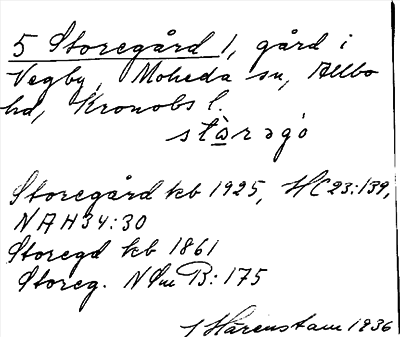 5 Storegård 1, gård i
Vegby, Moheda sn, Allbo
hd, Kronobs l.
stàrəgó
Storegård kb 1925, HC23:139,
NAH34:30
Storegd kb 1861
Storeg. NSm B:175
Härenstam 1936